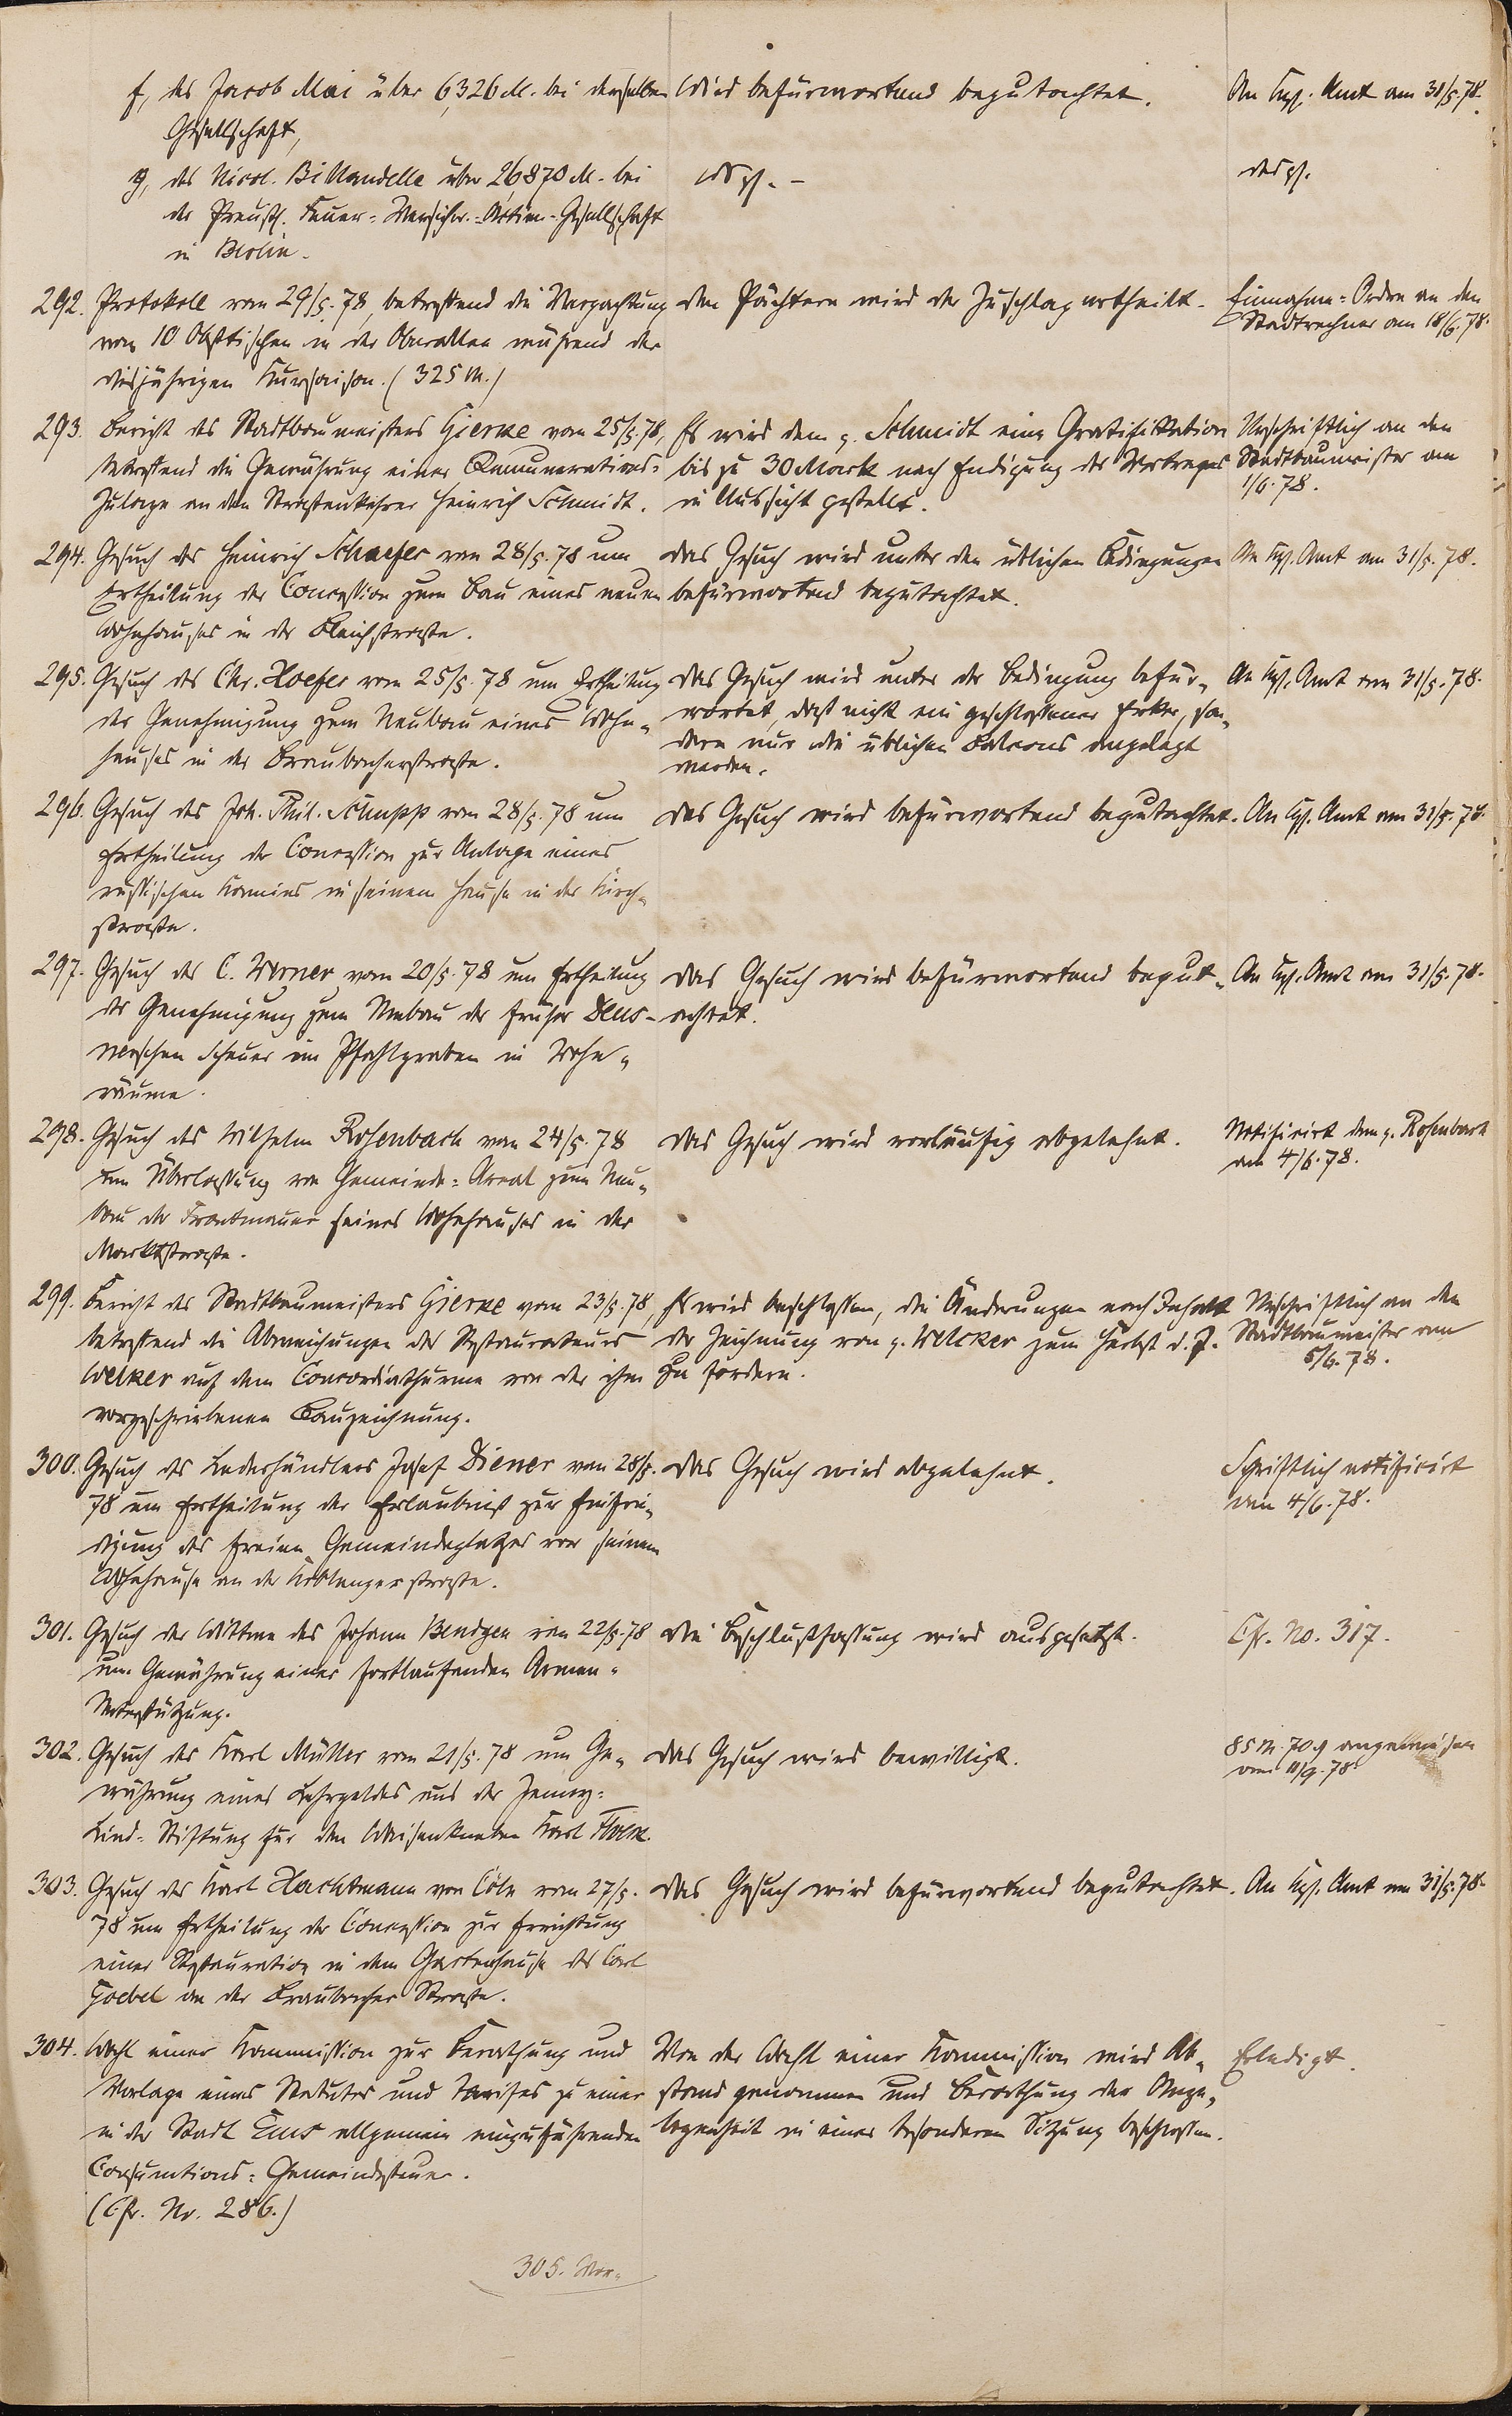 f, des Jacob Mai über 6,326 M. bei derselben
Gesellschaft,
Wird befürwortend begutachtet.
An Kgl. Amt am 31/5.78.
g, des Nicol. Billaudelle über 26,870 M. bei
der Preuß. Feuer-Versicher.-Aktien-Gesellschaft
in Berlin.
desgl. -
desgl.
292. Protokoll vom 29/5.78, betreffend die Verpachtung
von 10 Obsttischen in der Oberallee während der
diesjährigen Kursaison. (325 M.)
Den Pächtern wird der Zuschlag ertheilt.
Einnahme-Ordre an den
Stadtrechner am 18/6.78.
293. Bericht des Stadtbaumeisters Gierke vom 25/5.78,
betreffend die Gewährung einer Remunerations-
Zulage an den Straßenkehrer Heinrich Schmidt.
Es wird dem p. Schmidt eine Gratifikation
bis zu 30 Mark nach Endigung des Vertrages
in Aussicht gestellt.
Urschriftlich an den
Stadtbaumeister am
1/6.78.
294. Gesuch des Heinrich Schaefer vom 28/5.78 um
Ertheilung der Concession zum Bau eines neuen
Wohnhauses in der Bleichstraße.
Das Gesuch wird unter den üblichen Bedingungen
befürwortend begutachtet.
An Kgl. Amt am 31/5.78.
295. Gesuch des Chr. Hoefer vom 25/5.78 um Ertheilung
der Genehmigung zum Neubau eines Wohn-
hauses in der Braubacherstraße.
Das Gesuch wird unter der Bedingung befür-
wortet, daß nicht ein geschlossener Erker, son-
dern nur die üblichen Balcons angelegt
werden.
An Kgl. Amt am 31/5.78.
296. Gesuch des Joh. Phil. Schupp vom 28/5.78 um
Ertheilung der Concession zur Anlage eines
russischen Kamines in seinem Hause in der Kirch-
straße.
Das Gesuch wird befürwortend begutachtet.
An Kgl. Amt am 31/5.78.
297. Gesuch des C. Werner vom 20/5.78 um Ertheilung
der Genehmigung zum Umbau der früher Deus-
nerschen Scheuer im Pfahlgraben in Wohn-
räume.
Das Gesuch wird befürwortend begut-
achtet.
An Kgl. Amt am 31/5.78.
298. Gesuch des Wilhelm Rosenbach vom 24/5.78
um Überlassung von Gemeinde-Areal zum Neu-
bau der Frontmauer seines Wohnhauses in der
Marktstraße.
Das Gesuch wird vorläufig abgelehnt.
Notificirt dem p. Rosenbach
am 4/6.78.
299. Bericht des Stadtbaumeisters Gierke vom 23/5.78,
betreffend die Abweichungen des Restaurateurs
Welker auf dem Concordiathurme von der ihm
vorgeschriebenen Bauzeichnung.
Es wird beschlossen, die Änderungen nach Inhalt
der Zeichnung von p. Welcker zum Herbst d. J.
zu fordern.
Urschriftlich an den
Stadtbaumeister am
5/6.78.
300. Gesuch des Lederhändlers Josef Diener vom 28/5.
78 um Ertheilung der Erlaubniß zur Einfrie-
digung des freien Gemeindeplatzes vor seinem
Wohnhause an der Koblenzerstraße.
Das Gesuch wird abgelehnt.
Schriftlich notificirt
am 4/6.78.
301. Gesuch der Wittwe des Johann Bendgen vom 22/5.78
um Gewährung einer fortlaufenden Armen-
Unterstützung.
Die Beschlußfassung wird ausgesetzt.
Cfr. No. 317.
302. Gesuch des Karl Müller vom 21/5.78 um Ge-
währung eines Lehrgeldes aus der Jenny-
Lind-Stiftung für den Waisenknaben Karl Flöck.
Das Gesuch wird bewilligt.
85 M. 70 ₰ angewiesen
am 11/9.78
303. Gesuch des Karl Hachtmann von Cöln vom 27/5.
78 um Ertheilung der Concession zur Errichtung
einer Restauration in dem Gartenhause des Carl
Goebel an der Braubacher Straße.
Das Gesuch wird befürwortend begutachtet.
An Kgl. Amt am 31/5.78.
304. Wahl einer Kommission zur Berathung und
Vorlage eines Statutes und Tarifes zu einer
in der Stadt Ems allgemein einzuführenden
Consumtions-Gemeindesteuer.
(Cfr. No. 286.)
Von der Wahl einer Kommission wird Ab-
stand genommen und Berathung der Ange-
legenheit in einer besonderen Sitzung beschlossen.
Erledigt.
305. Vor-